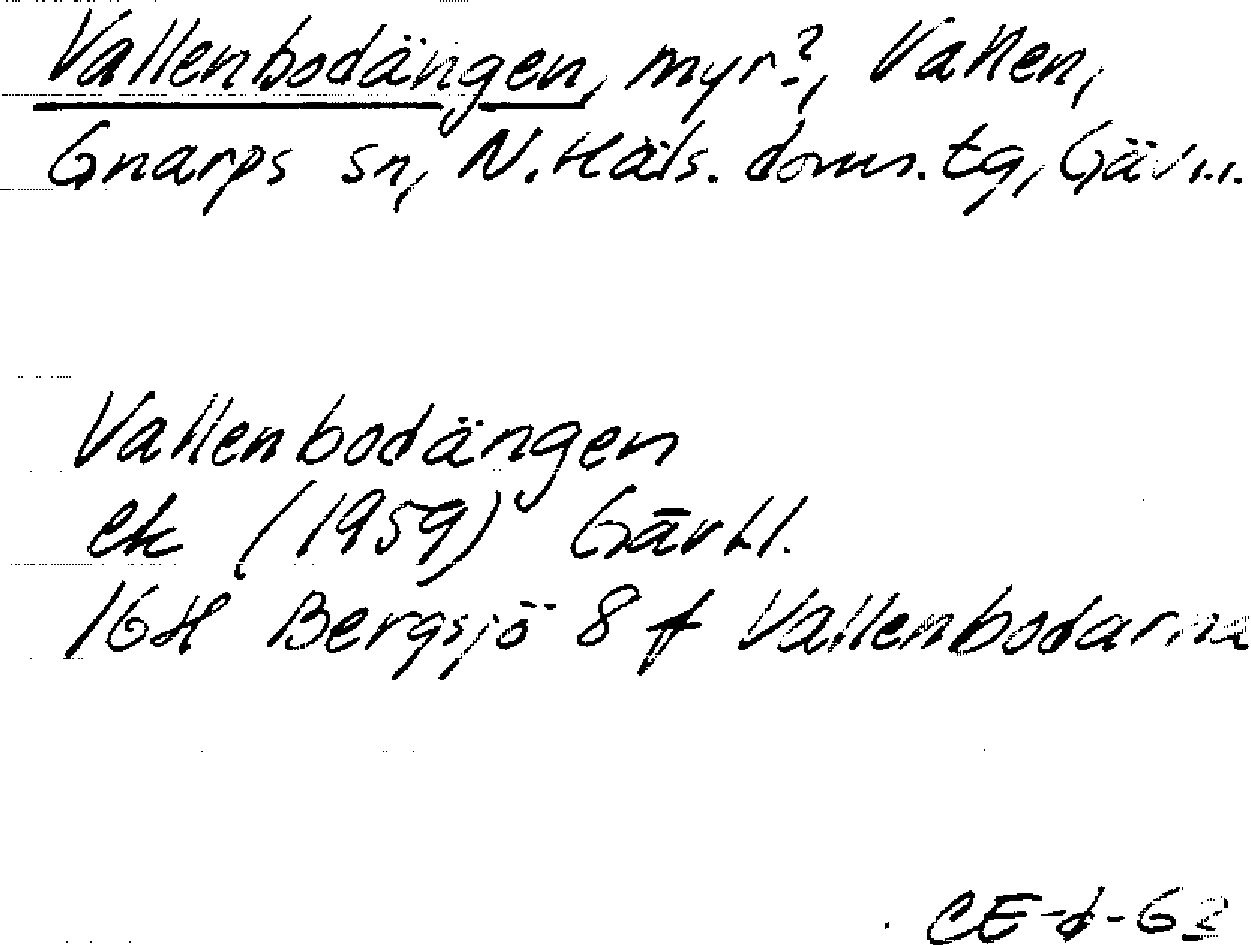 Vallenbodängen, myr?, Vallen,
Gnarps sn, N. Häls. doms. tg, Gävl.l.
Vallenbodängen
ek (1959) Gävl.l.
16H Bergsjö 8 f Vallenbodarna
CE-d-63